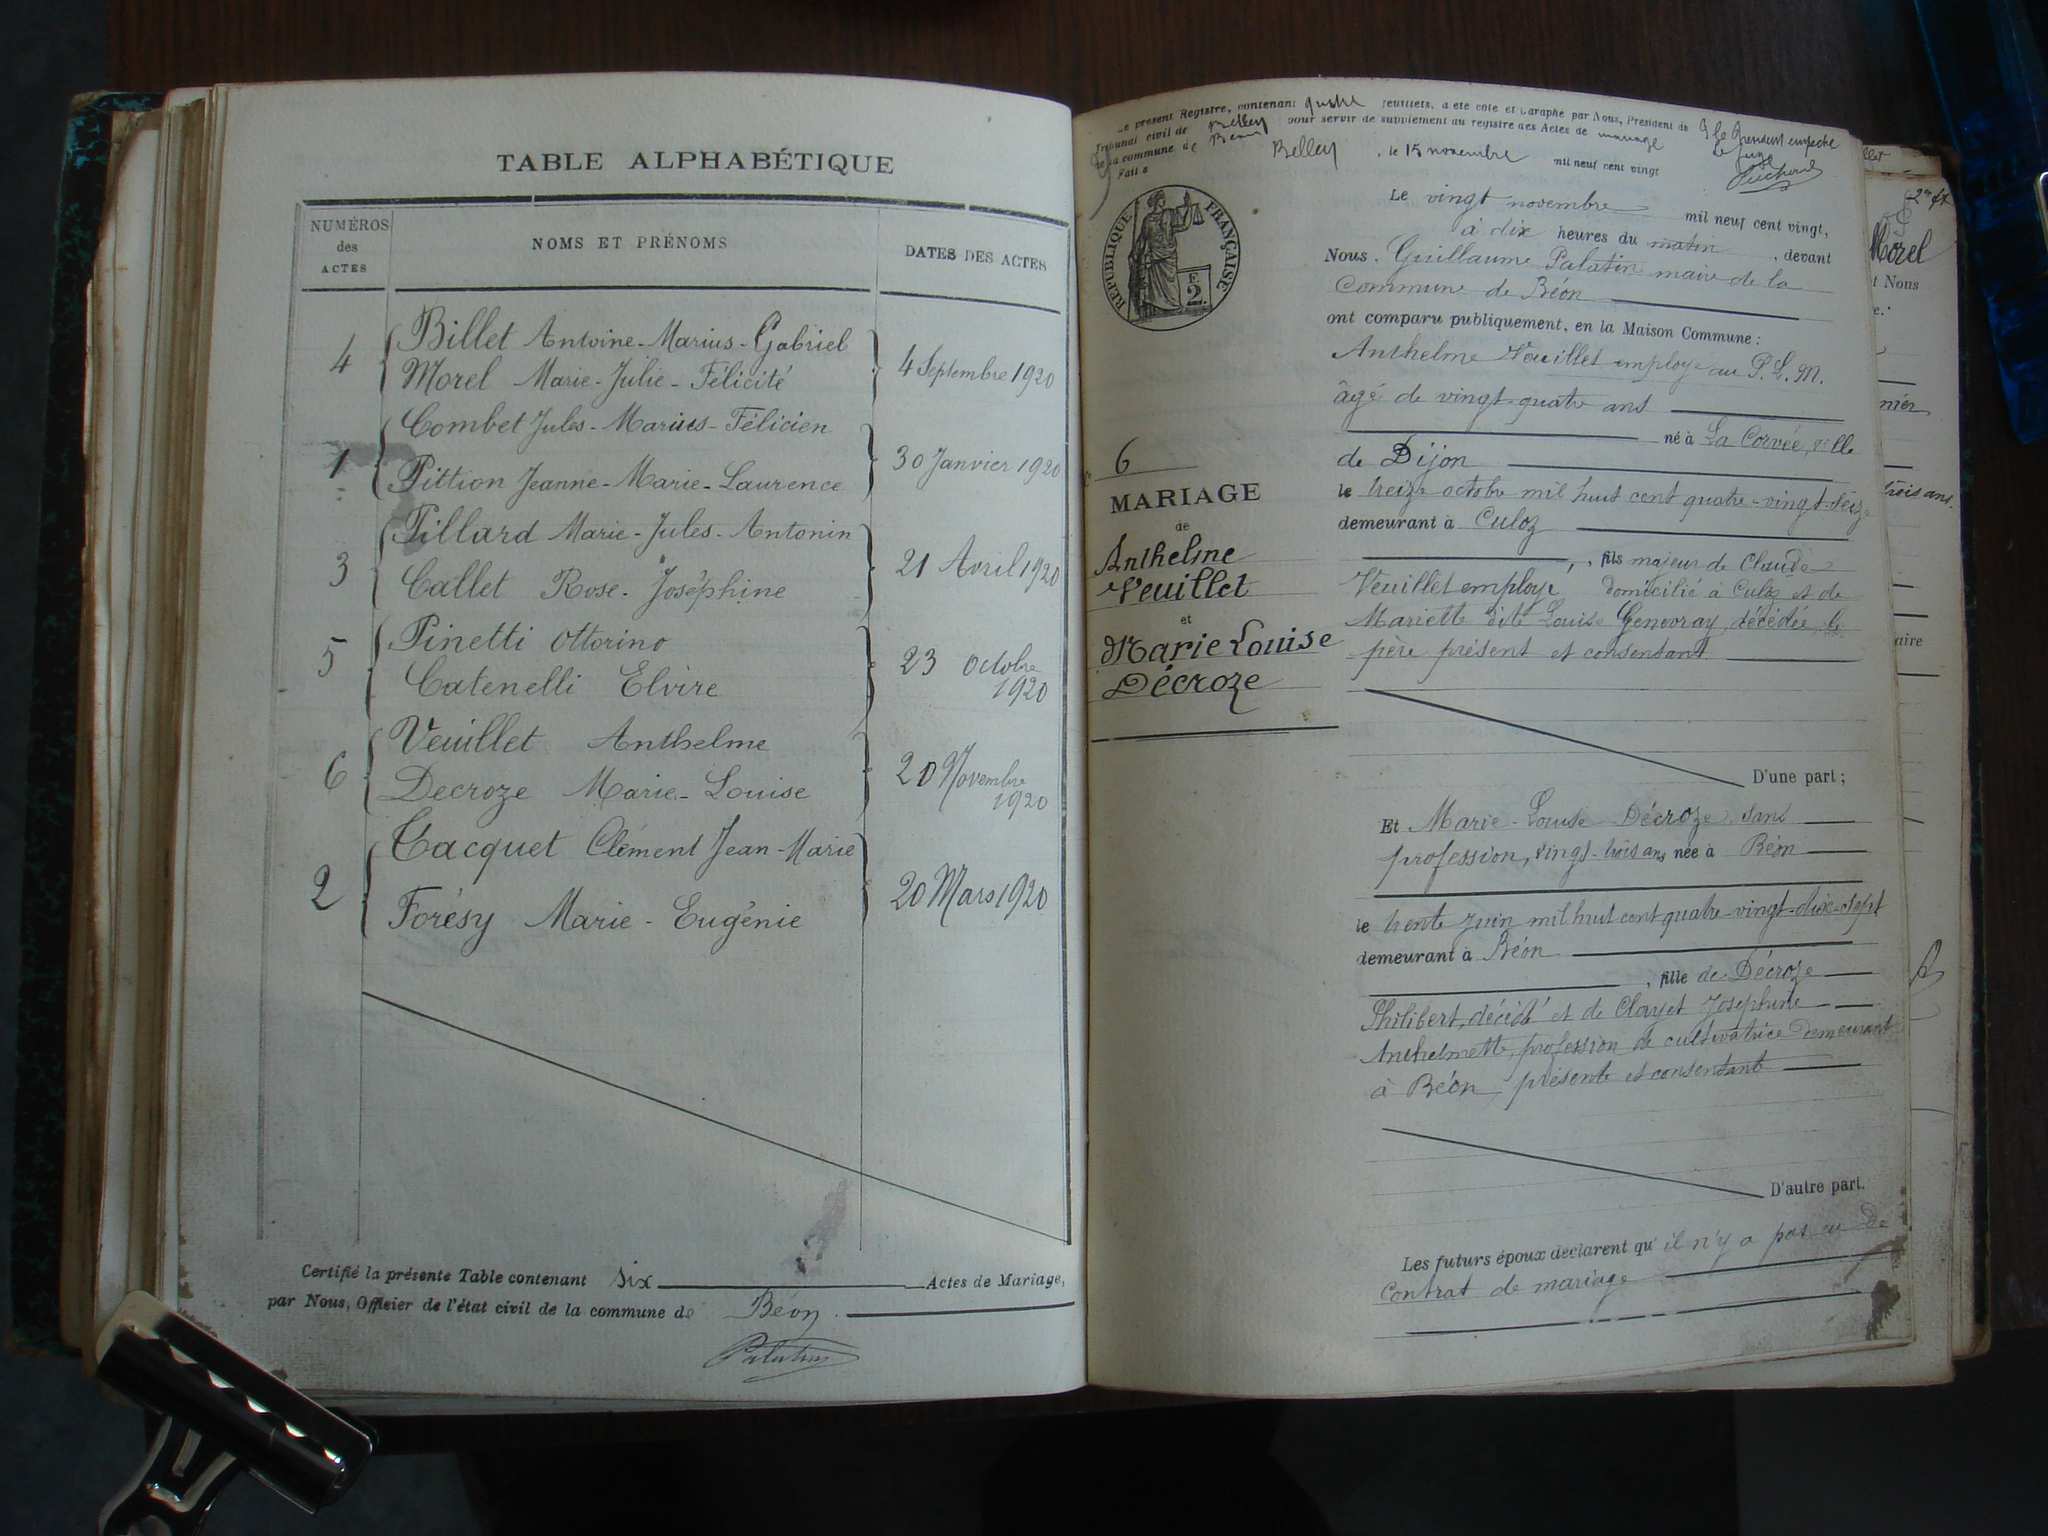 TABLE ALPHABÉTIQUE
NUMÉROS
des
ACTES
NOMS ET PRÉNOMS
DATES DES ACTES
4
Billet Antoine-Marius-Gabriel
Morel Marie-Julie-Félicité
4 Septembre 1920
1
Combet Jules-Marius-Félicien
Pittion Jeanne-Marie-Laurence
30 Janvier 1920
3
Pillard Marie-Jules-Antonin
Callet Rose-Joséphine
21 Avril 1920
5
Pinetti Ottorino
Catenelli Elvire
23 Octobre
1920
6
Veuillet Anthelme
Decroze Marie-Louise
20 Novembre
1920
2
Tacquet Clément Jean-Marie
Forésy Marie-Eugénie
20 Mars 1920
Certifié la présente Table contenant six Actes de Mariage,
par Nous, Officier de l'état civil de la commune de Béon
Palatin
Le présent Registre, contenant feuillets, a été coté et paraphé par Nous, Président du
Tribunal civil de Belley pour servir de supplément au registre des Actes de mariage
de la commune de Béon
Fait à Belley, le 15 novembre mil neuf cent vingt
le Président empêché
Le juge
RÉPUBLIQUE FRANÇAISE
F.
2.
6
MARIAGE
de
Anthelme
Veuillet
et
Marie Louise
Décroze
Le vingt novembre mil neuf cent vingt,
à dix heures du matin, devant
Nous, Guillaume Palatin maire de la
Commune de Béon
ont comparu publiquement, en la Maison Commune :
Anthelme Veuillet employé au P.L.M.
âgé de vingt-quatre ans
né à La Corvée, ville
de Dijon
le treize octobre mil huit cent quatre-vingt-seize
demeurant à Culoz
, fils majeur de Claude
Veuillet employé domicilié à Culoz et de
Mariette dite Louise Genovray, décédée, le
père présent et consentant
D'une part ;
Et Marie-Louise Décroze sans
profession, vingt-trois ans née à Béon
le trente juin mil huit cent quatre-vingt-dix-sept
demeurant à Béon
, fille de Décroze
Philibert, décédé et de Clayet Josephine
Anthelmette, profession de cultivatrice demeurant
à Béon, présente et consentante
D'autre part.
Les futurs époux déclarent qu'il n'y a pas eu de
Contrat de mariage
Morel
Nous
trois ans